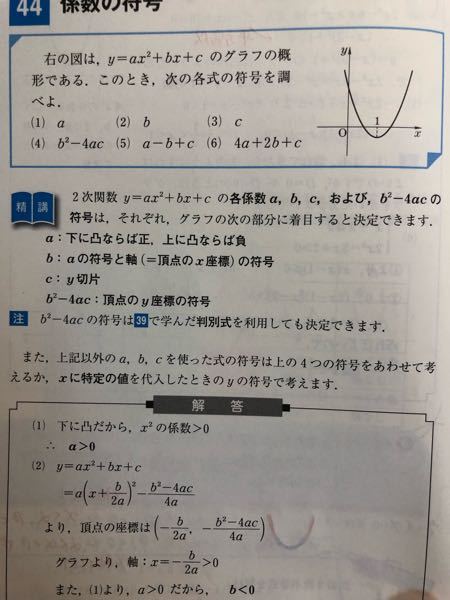 44 係数の符号
右の図は，y＝ax²＋bx＋c のグラフの概
形である．このとき，次の各式の符号を調
べよ．
(1) a (2) b (3) c
(4) b²−4ac (5) a−b＋c (6) 4a＋2b＋c
y
O 1 x
精講
2次関数 y＝ax²＋bx＋c の各係数 a，b，c，および，b²−4ac の
符号は，それぞれ，グラフの次の部分に着目すると決定できます．
a：下に凸ならば正，上に凸ならば負
b：a の符号と軸（＝頂点の x 座標）の符号
c：y 切片
b²−4ac：頂点の y 座標の符号
注 b²−4ac の符号は 39 で学んだ判別式を利用しても決定できます．
また，上記以外の a，b，c を使った式の符号は上の4つの符号をあわせて考
えるか，x に特定の値を代入したときの y の符号で考えます．
解答
(1) 下に凸だから，x² の係数＞0
∴ a＞0
(2) y＝ax²＋bx＋c
＝a(x＋b/2a)²−(b²−4ac)/4a
より，頂点の座標は(−b/2a，−(b²−4ac)/4a)
グラフより，軸：x＝−b/2a＞0
また，(1)より，a＞0 だから， b＜0